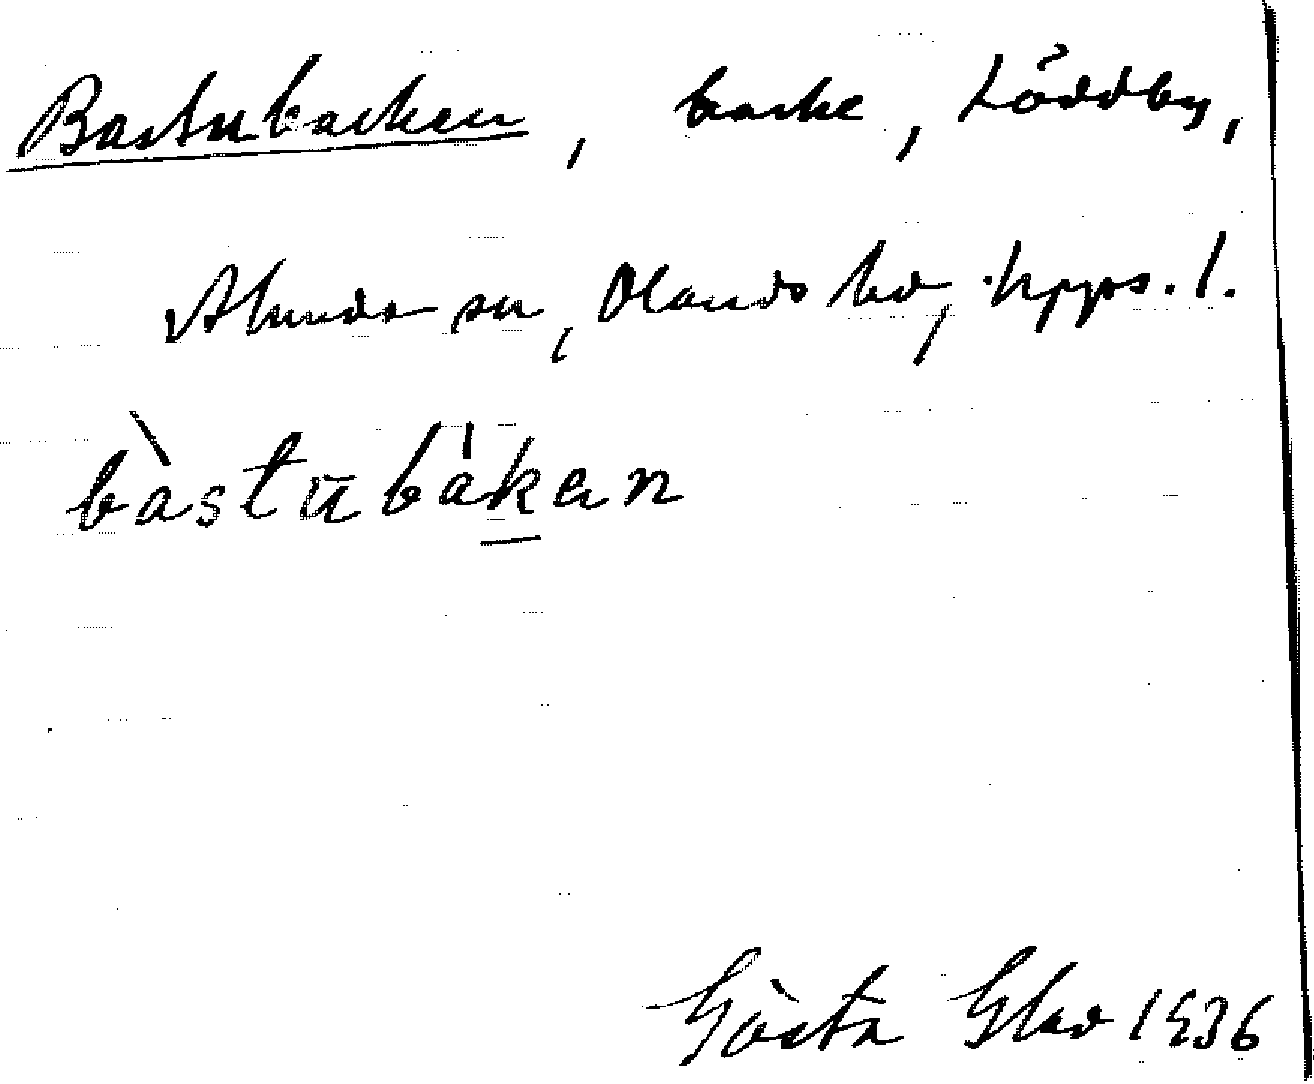 Bastubacken, backe, Löddby,
Alunda sn, Olands hd, Upps. l.
bàstūbàkan
Gösta Glad 1936